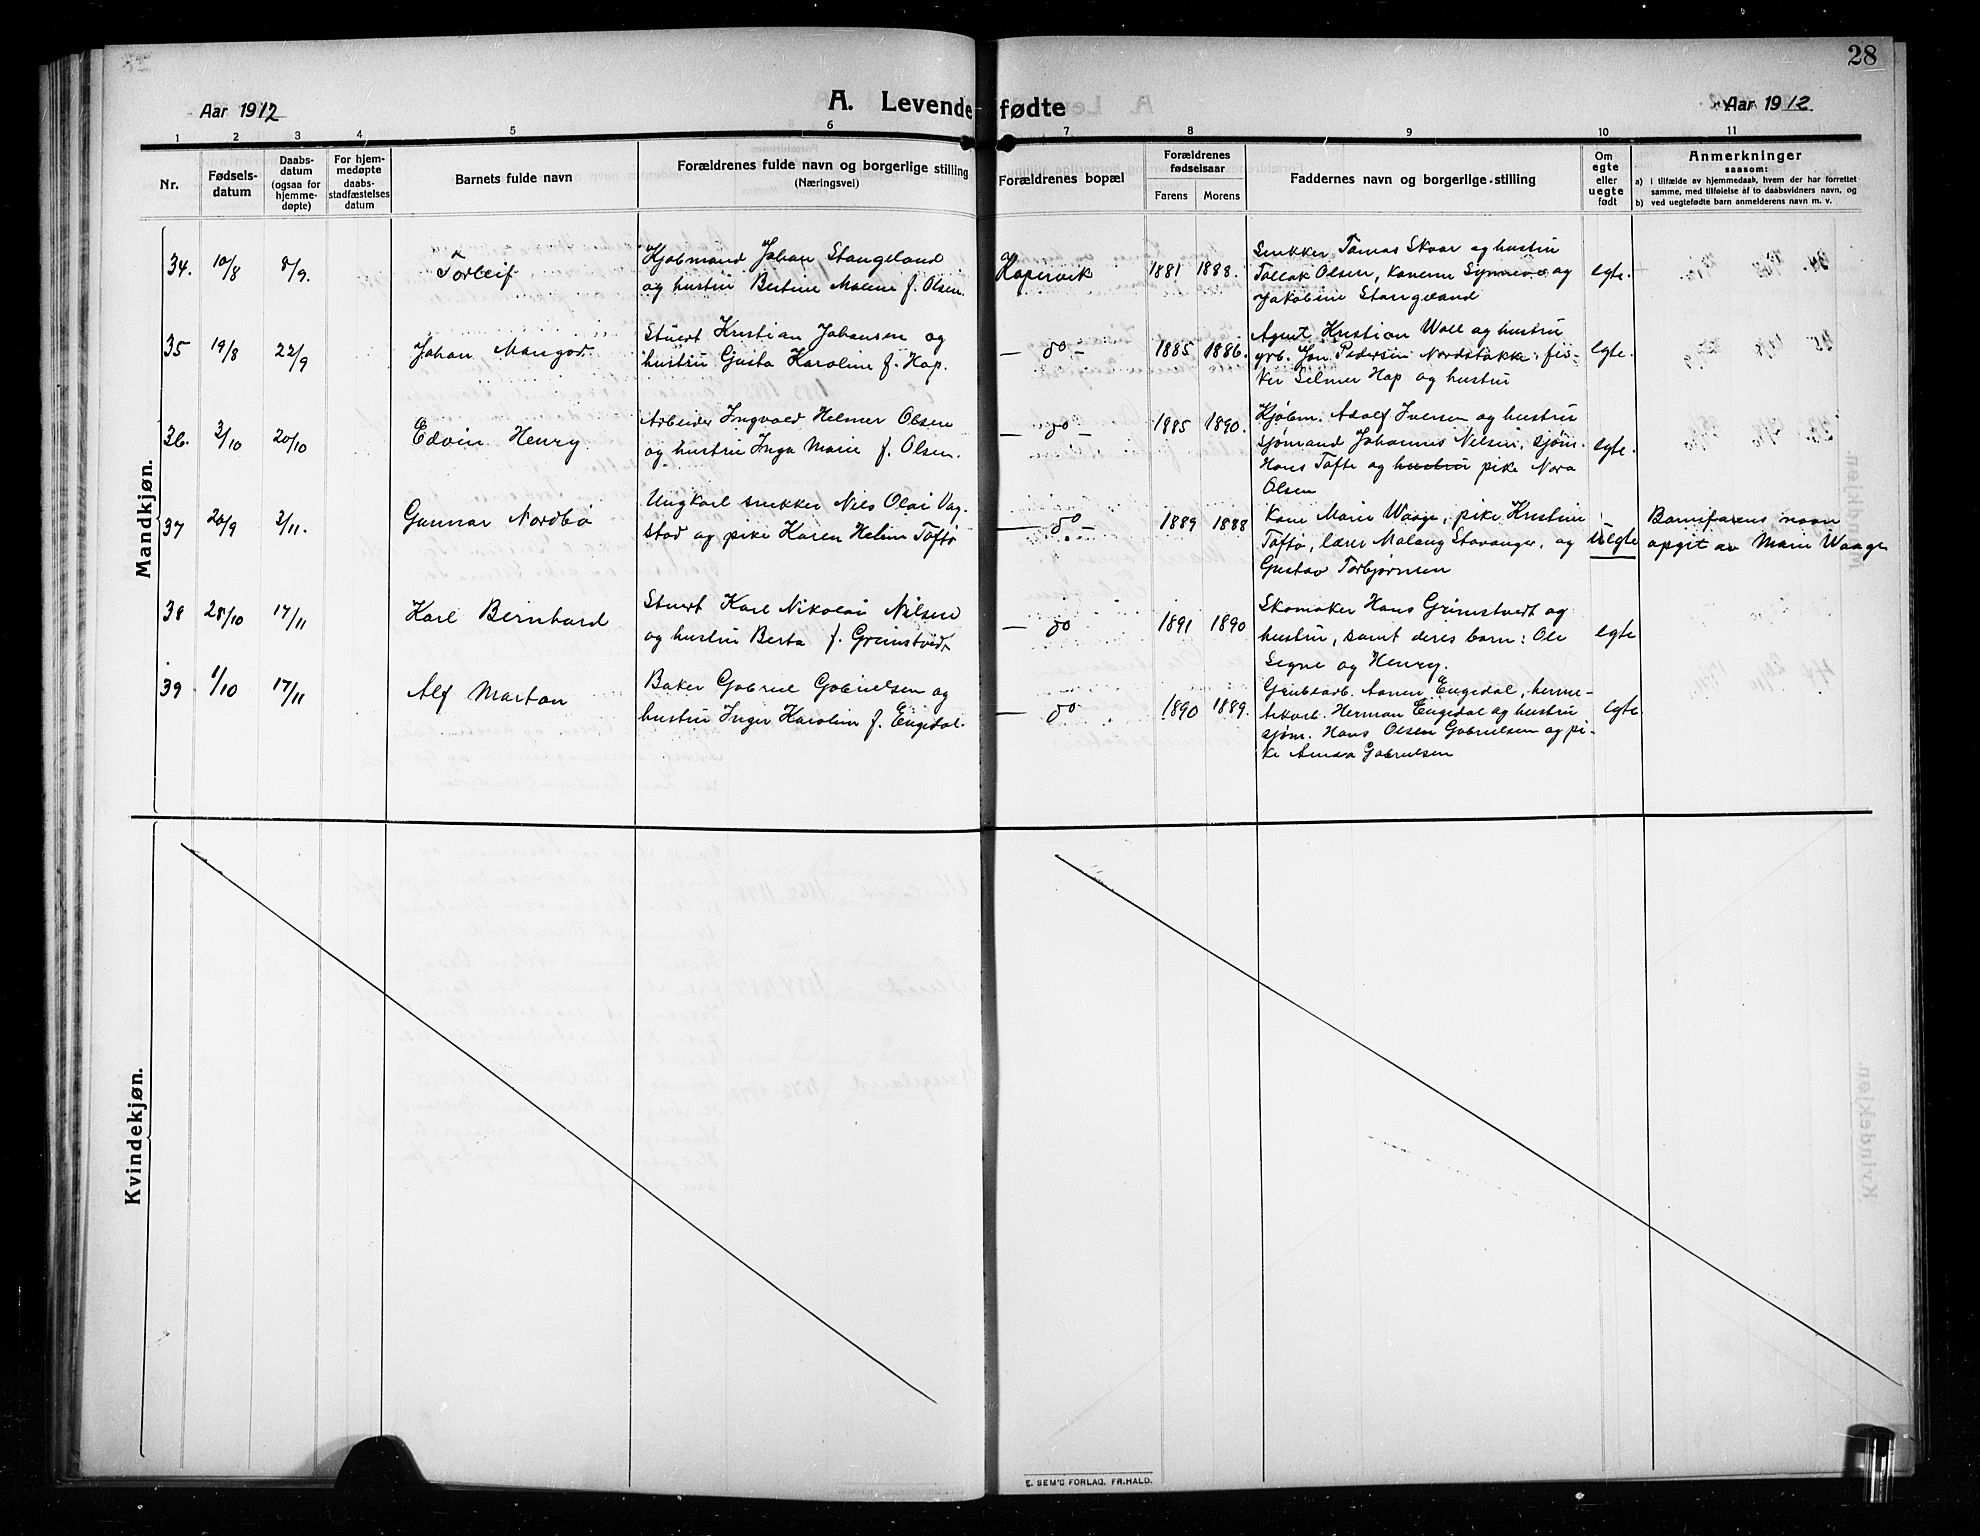 28
Aar 1912
A. Levendefødte
Aar 1912
1 2 3 4 5 6 7 8 9 10 11
Nr.
Fødsels-
datum
Daabs-
datum
(ogsaa for
hjemme-
døpte)
For hjem-
medøpte
daabs-
stadfæstelses
datum
Barnets fulde navn
Forældrenes fulde navn og borgerlige stilling
(Næringsvei)
Forældrenes bopæl
Forældrenes
fødselsaar
Farens Morens
Faddernes navn og borgerlige stilling
Om
egte
eller
uegte
født
Anmerkninger
saasom:
a) i tilfælde av hjemmedaab, hvem der har forrettet
samme, med tilføielse af to daabsvidners navn, og
b) ved uegtefødte barn anmelderens navn m. v.
Mandkjøn.
34. 10/8 8/9. Torleif
Kjøbmand Johan Stangeland
og hustru Bertine Malene f. Olsen.
Kopervik 1881 1888.
Snekker Tomas Skaar og hustru
Tollak Olsen, konerne Synneve og
Jakobine Stangeland
egte.
35 19/8 22/9 Johan Mangod
Stuert Kristian Johansen og
hustru Gusta Karoline f. Hop.
— do — 1885 1886.
Agent Kristian Wall og hustru
grb. Jon Pedersen Nordstokke, fis-
ker Selmer Hop og hustru
egte.
36. 3/10 20/10 Edvin Henry
Arbeider Ingvald Helmer Olsen
og hustru Inga Marie f. Olsen.
— do — 1885 1890.
Kjøbm. Adolf Iversen og hustru
sjømand Johannes Nilsen, sjøm.
Hans Tofte og hustru pike Nora
Olsen
egte.
37 20/9 3/11. Gunnar Nordbø
Ungkarl snekker Nils Olai Vag-
stad og pike Karen Helene Toftø
— do — 1889 1888
Kone Marie Waage, pike Kristine
Toftø, lærer Malang Stavanger, og
Gustav Torbjørnsen
uegte
Barnefarens navn
opgit av Marie Waage
38 28/10 17/11 Karl Bernhard
Stuert Karl Nikolai Nilsen
og hustru Berta f. Grimstvedt
— do 1891 1890
Skomaker Hans Grimstvedt og
hustru, samt deres barn: Ole
Signe og Henry.
egte
39 1/10 17/11 Alf Marton
Baker Gabriel Gabrielsen og
hustru Inger Karoline f. Engedal.
— do 1890 1889.
Grubearb. Aanen Engedal, herme-
tikarb. Herman Engedal og hustru
sjøm. Hans Olsen Gabrielsen og pi-
ke Amda Gabrielsen
egte
Kvindekjøn.
E. SEM'S FORLAG, FR.HALD.